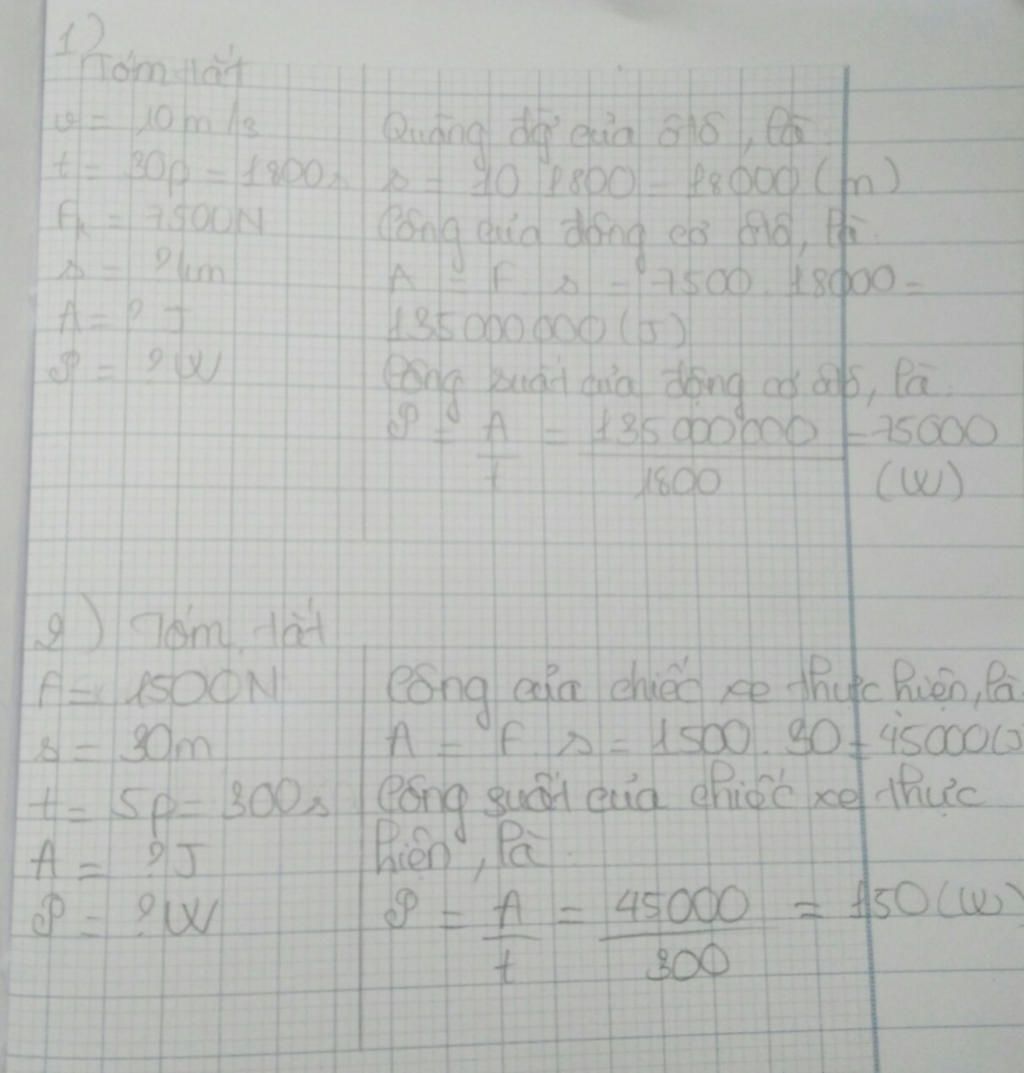 1)
Tóm tắt
v = 10m/s
t = 30p = 1800s
Fk = 7500N
s = ? km
A = ? J
P = ? W
Quãng đg của ôtô, là
s = 10.1800 = 18000 (m)
Công của động cơ ôtô, là:
A = F.s = 7500.18000 =
135000000 (J)
Công suất của động cơ ôtô, là:
P = A/t = 135000000/1800 = 75000
(W)
2) Tóm tắt
F = 1500N
s = 30m
t = 5p = 300s
A = ? J
P = ? W
Công của chiếc xe thực hiện, là
A = F.s = 1500.30 = 45000(J
Công suất của chiếc xe thực
hiện, là:
P = A/t = 45000/300 = 150 (W)